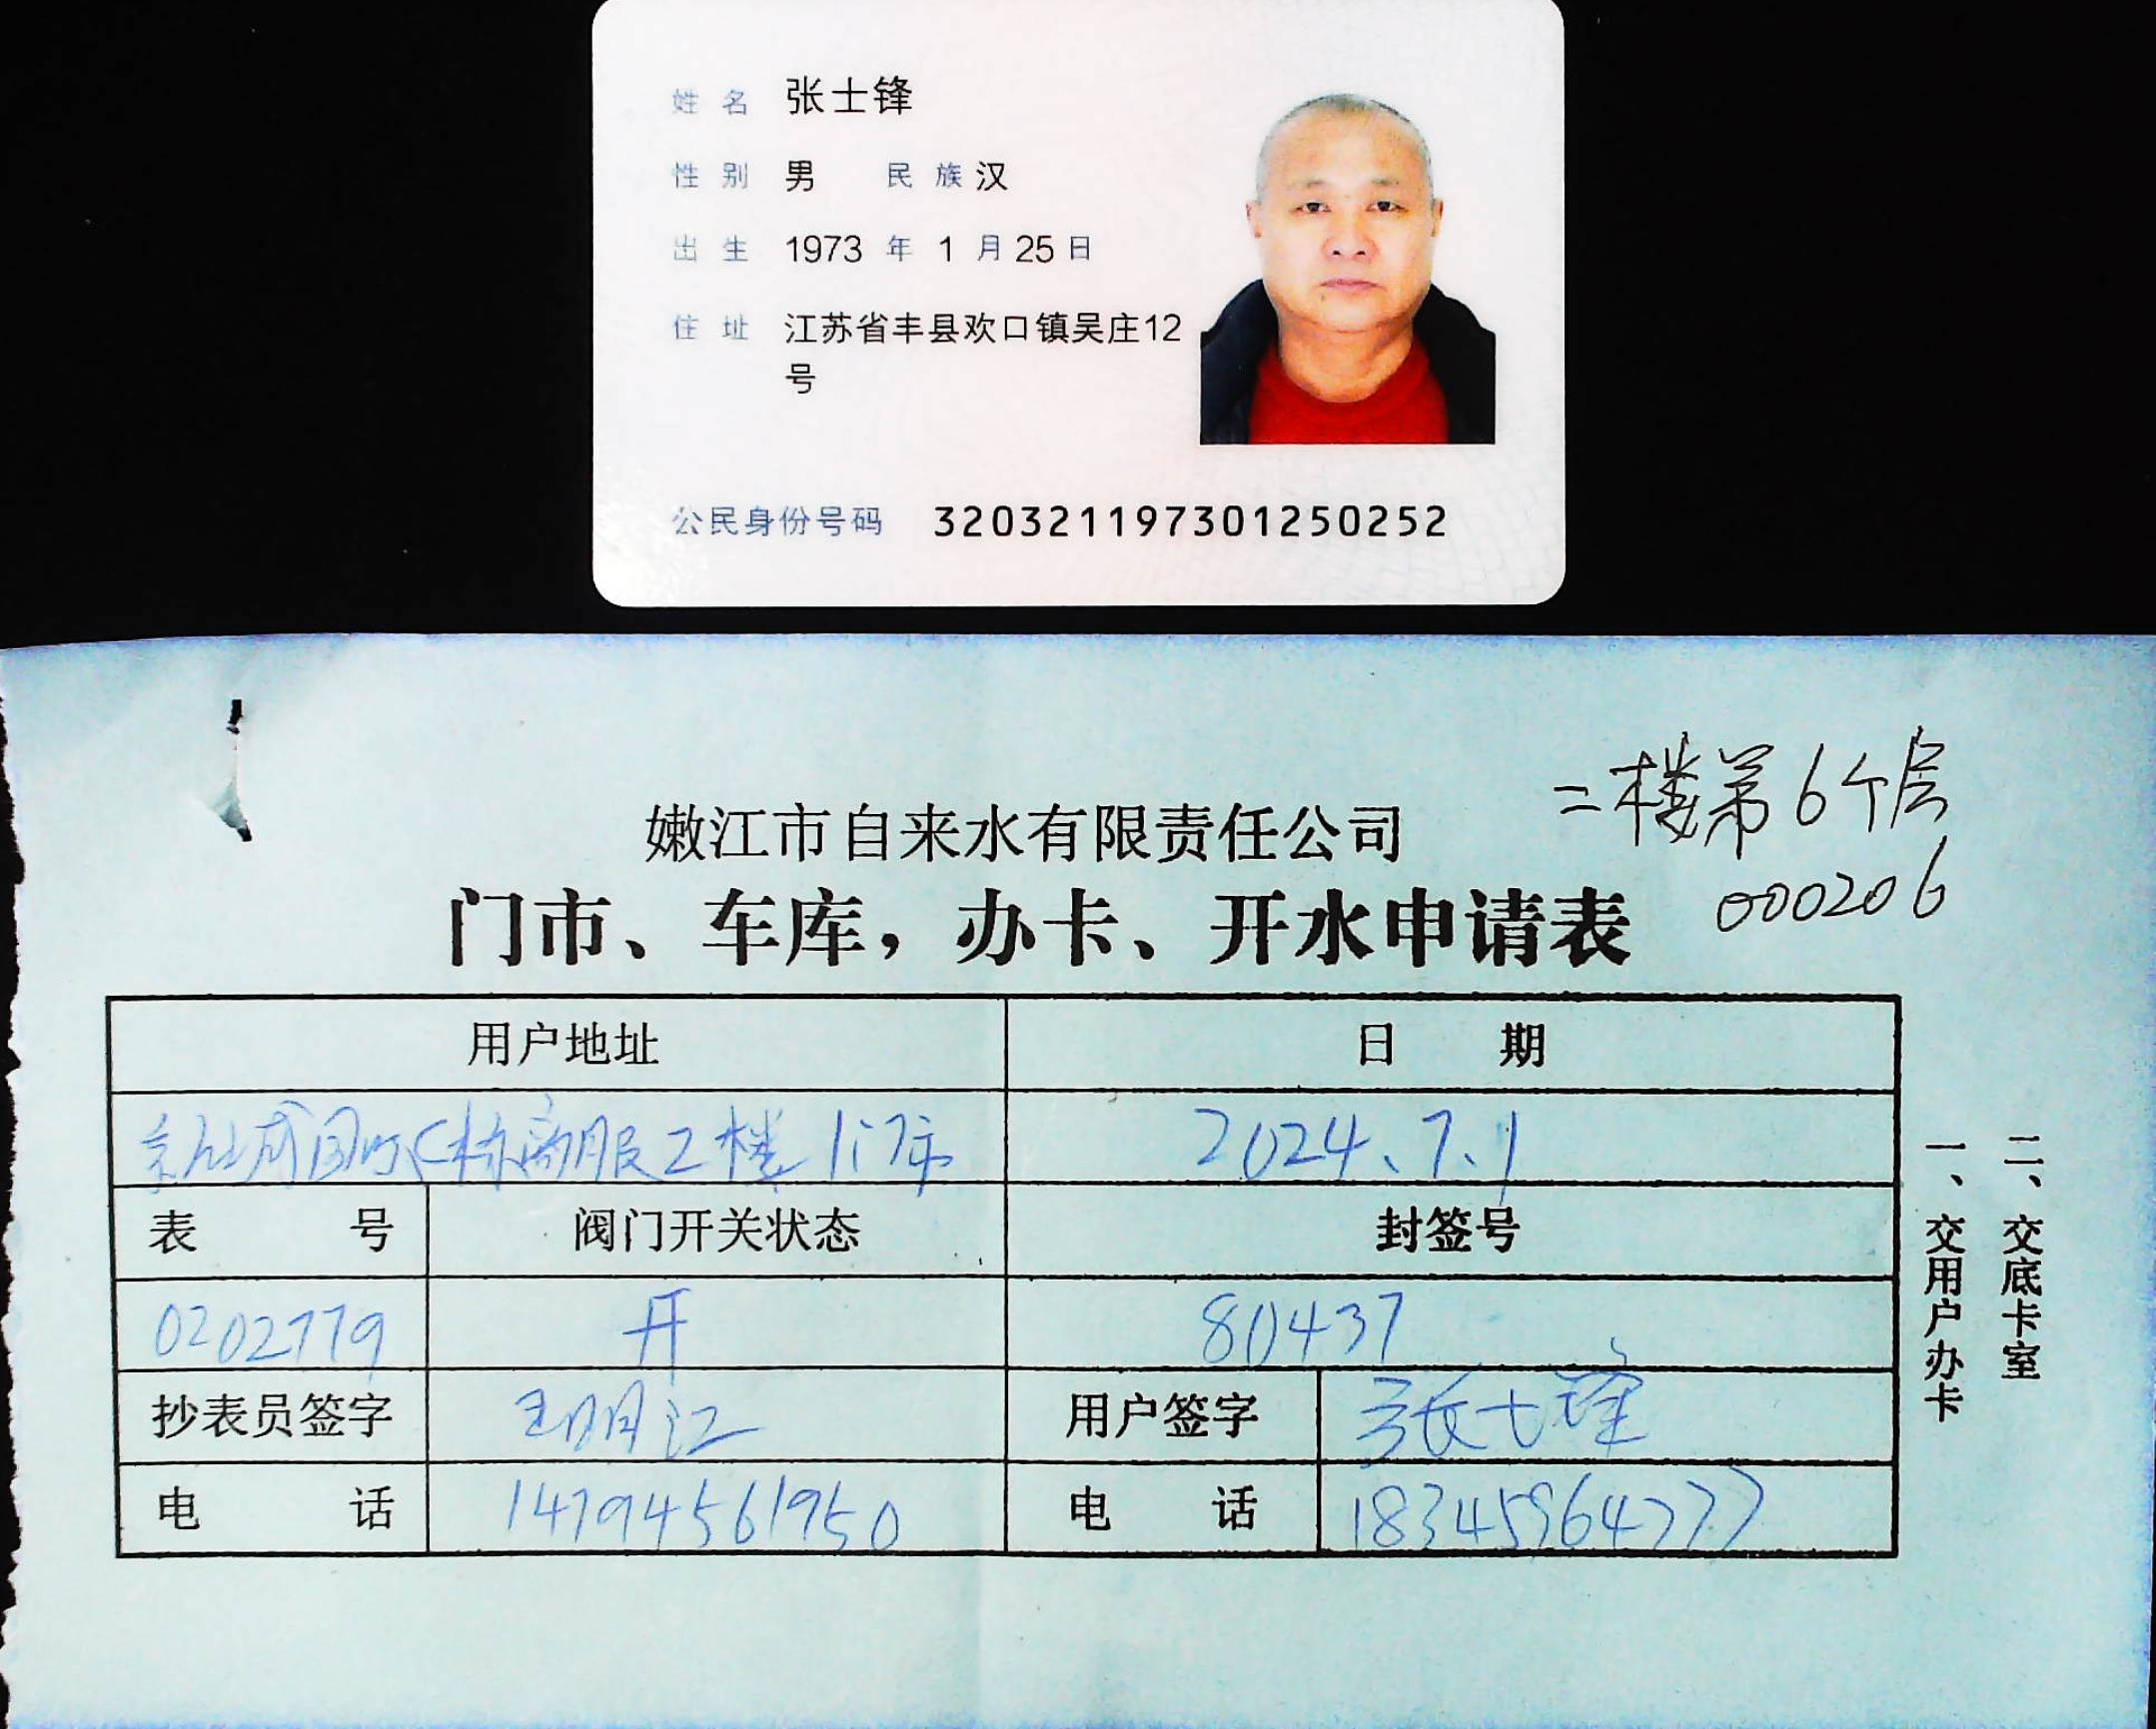 姓名 张士锋
性别 男 民族 汉
出生 1973 年 1 月 25 日
住址 江苏省丰县欢口镇吴庄12
号
公民身份号码 320321197301250252
二楼第6个层
000206
嫩江市自来水有限责任公司
门市、车库，办卡、开水申请表
用户地址 日期
C栋商服2楼1门市 2024、7、1
表号 阀门开关状态 封签号
0202779 开 80437
抄表员签字 王明江 用户签字 张士锋
电话 14794561950 电话 18345964777
一、交用户办卡
二、交底卡室